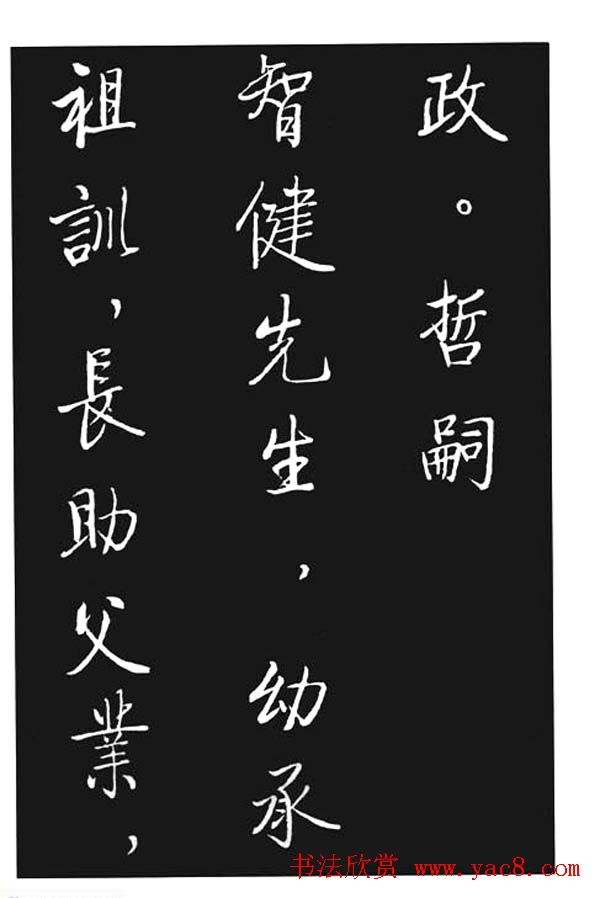 政。哲嗣
智健先生，幼承
祖訓，長助父業，
书法欣赏 www.yac8.com